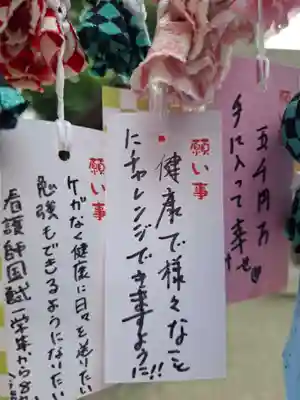 願い事
五千円万
手に入って幸せ
願い事
健康で様々なこと
にチャレンジできますように!!
願い事
ケガなく健康に日々を送りたい
勉強もできるようになりたい
看護師国試一発